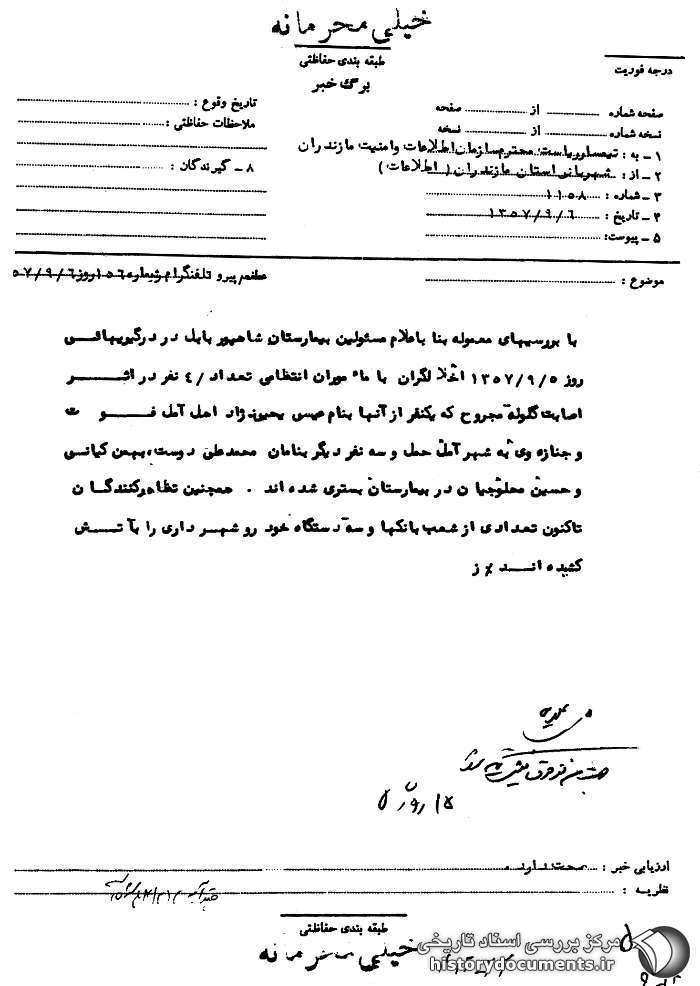 خیلی محرمانه
طبقه بندی حفاظتی
برگ خبر
درجه فوریت
صفحه شماره ........ از ........ صفحه
نسخه شماره ........ از ........ نسخه
۱ - به : تیمسار ریاست محترم سازمان اطلاعات و امنیت مازندران
۲ - از : شهربانی استان مازندران ( اطلاعات )
۳ - شماره : ۱۱۵۸
۴ - تاریخ : ۱۳۵۷/۹/۶
۵ - پیوست:
تاریخ وقوع :
ملاحظات حفاظتی :
۸ - گیرندگان :
موضوع :
پیرو تلفنگرام شماره ۱۵۶ روز ۵۷/۹/۶
با بررسیهای معموله بنا باعلام مسئولین بیمارستان شاهپور بابل در درگیریهائی
روز ۱۳۵۷/۹/۵ اخلالگران با ماموران انتظامی تعداد /٤ نفر در اثر
اصابت گلوله مجروح که یکنفر از آنها بنام عیسی یحیی نژاد اهل آمل فوت
و جنازه وی به شهر آمل حمل و سه نفر دیگر بنامان محمدعلی دوست، بهمن کیانی
و حسین محلوجیان در بیمارستان بستری شده اند . همچنین تظاهرکنندگان
تاکنون تعدادی از شعب بانکها و سه دستگاه خود رو شهر داری را بآتش
کشیده انــد ٪ ز
ارزیابی خبر : صحت دارد
نظریه :
طبقه بندی حفاظتی
خیلی محرمانه
مرکز بررسی اسناد تاریخی
historydocuments.ir